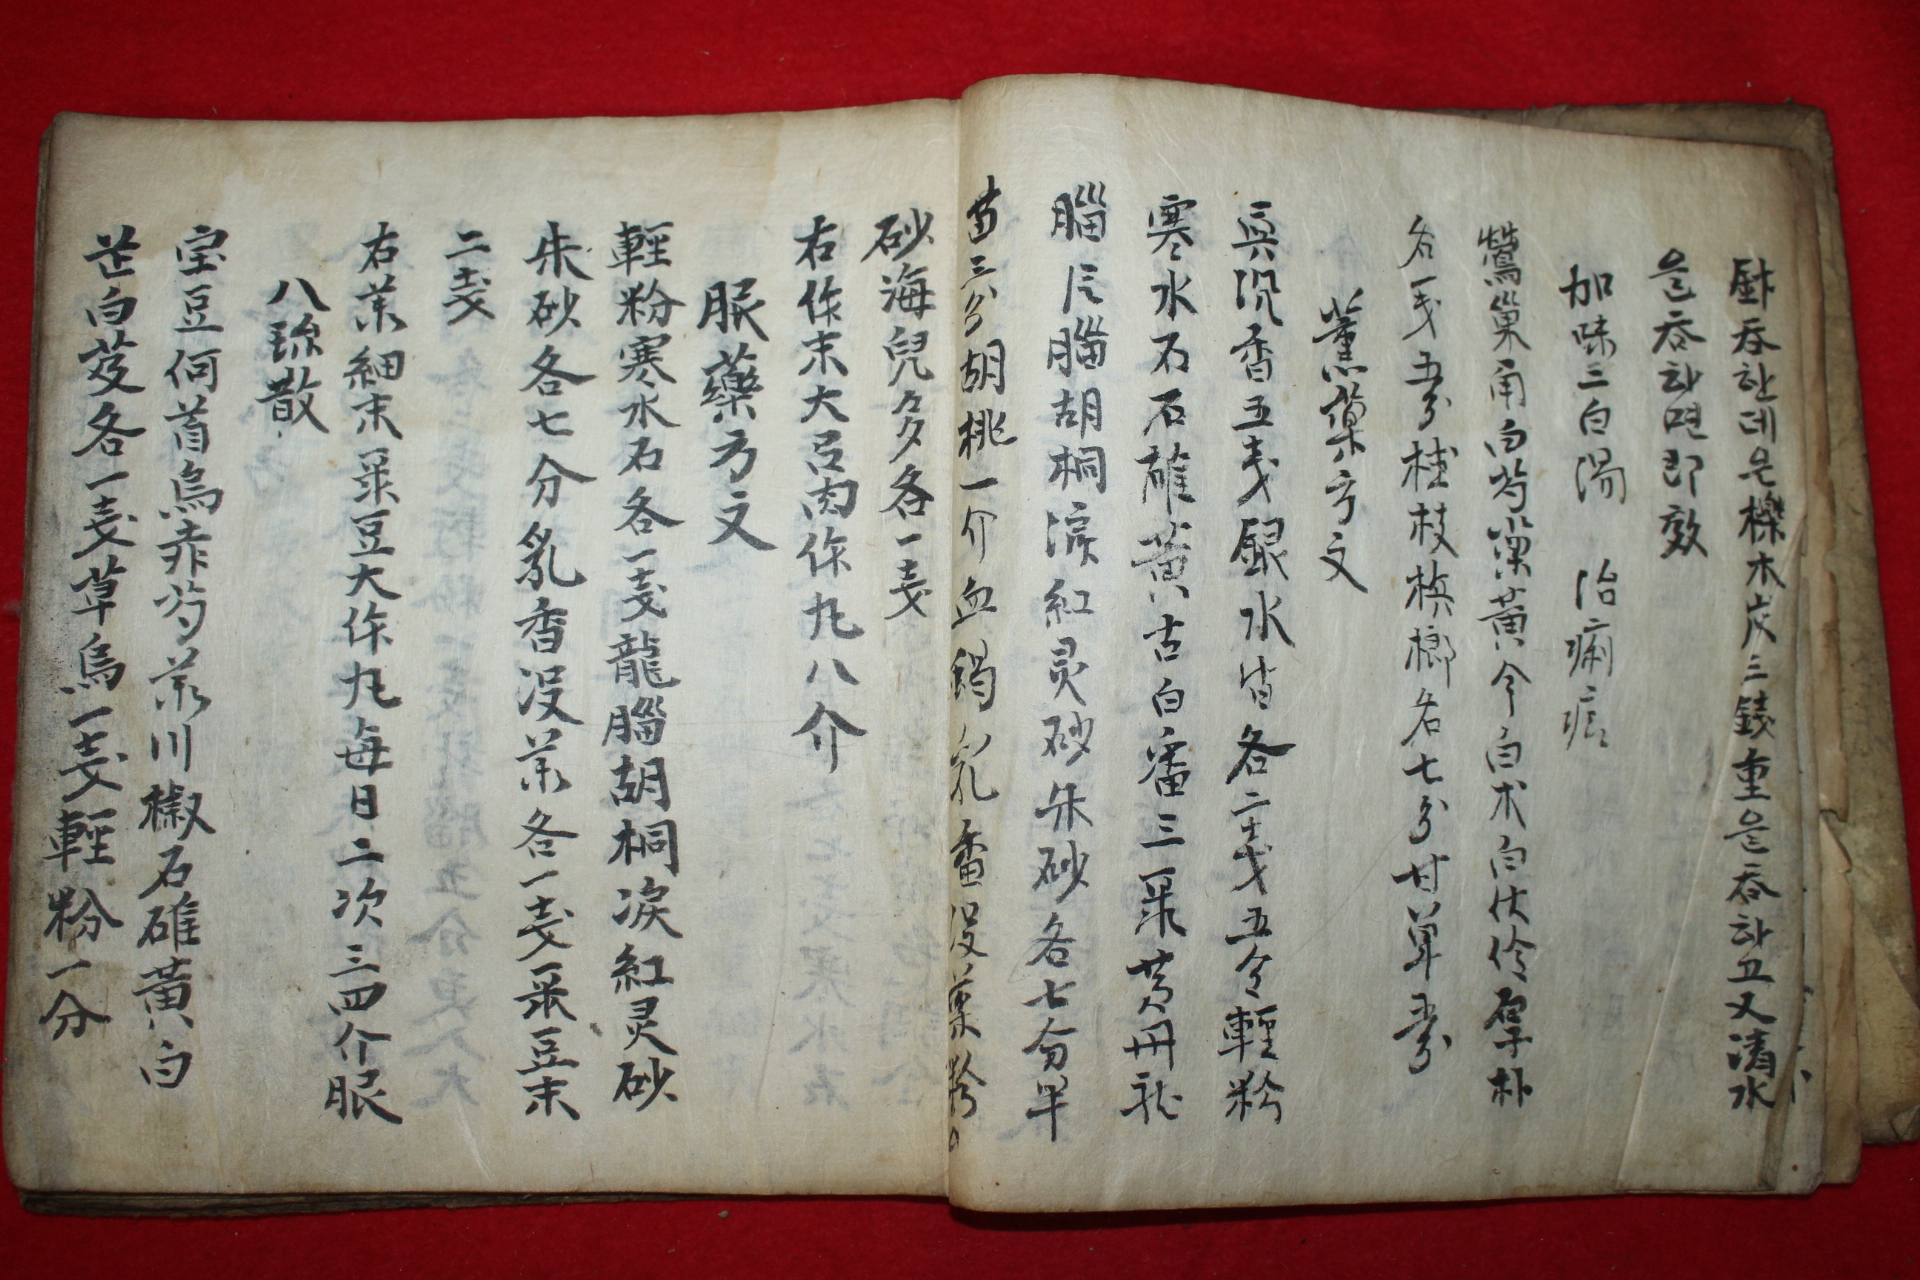 吞한데은櫟木灰三錢重을吞하고又淸水
을吞하면卽效
加味三白湯 治痢痕
鶯巢角白芍梁黃今白朮白伏伶厚朴
各一戔五分桂枝檳榔各七分甘草五分
薰藥方文
眞沉香五戔銀水皆各二戔五今輕粉
寒水石石雄黃古白礬三菉黃丹龍
腦片腦胡桐淚紅灵砂朱砂各七分單
三分胡桃一介血竭乳香沒藥
砂海兒多各一戔
右作末大召肉作丸八介
服藥方文
輕粉寒水石各一戔龍腦胡桐淚紅灵砂
朱砂各七分乳香沒薬各一戔菉豆末
二戔
右薬細末菉豆大作丸每日二次三四介服
八珎散
宝豆何首烏赤芍薬川椒石碓黃白
芷白芨各一戔草烏一戔輕粉一分